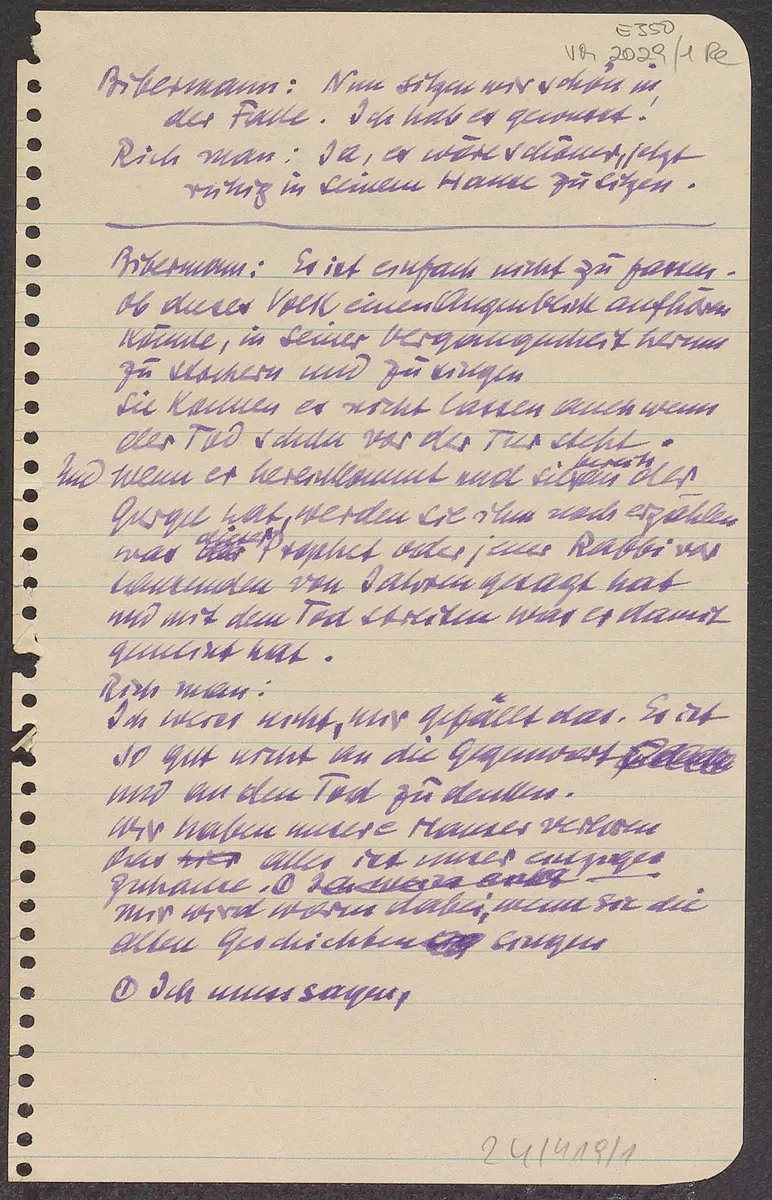 E350
2029/1 Re
Bibermann: Nun sitzen wir schön in
der Falle. Ich hab es gewusst!
Rich man: Ja, es wäre schöner, jetzt
ruhig in seinem Hause zu sitzen.
Bibermann: Es ist einfach nicht zu fassen.
ob dieses Volk einen Augenblick aufhören
könnte, in seiner Vergangenheit herum
zu stochern und zu singen
Sie können es nicht lassen auch wenn
der Tod schon vor der Tür steht.
bereits
Und wenn er hereinkommt und sie an der
Gurgel hat, werden sie ihm noch erzählen
dieser
was der Prophet oder jener Rabbi vor
tausenden von Jahren gesagt hat
und mit dem Tod streiten was er damit
gemeint hat.
Rich man:
Ich weiss nicht, mir gefällt das. Es ist
so gut nicht an die Gegenwart
und an den Tod zu denken.
Wir haben unsere Häuser verloren
Das hier alles ist unser einziges
Zuhause. ① Ich weiss nicht
mir wird warm dabei, wenn sie die
alten Geschichten singen
① Ich muss sagen,
24/419/1